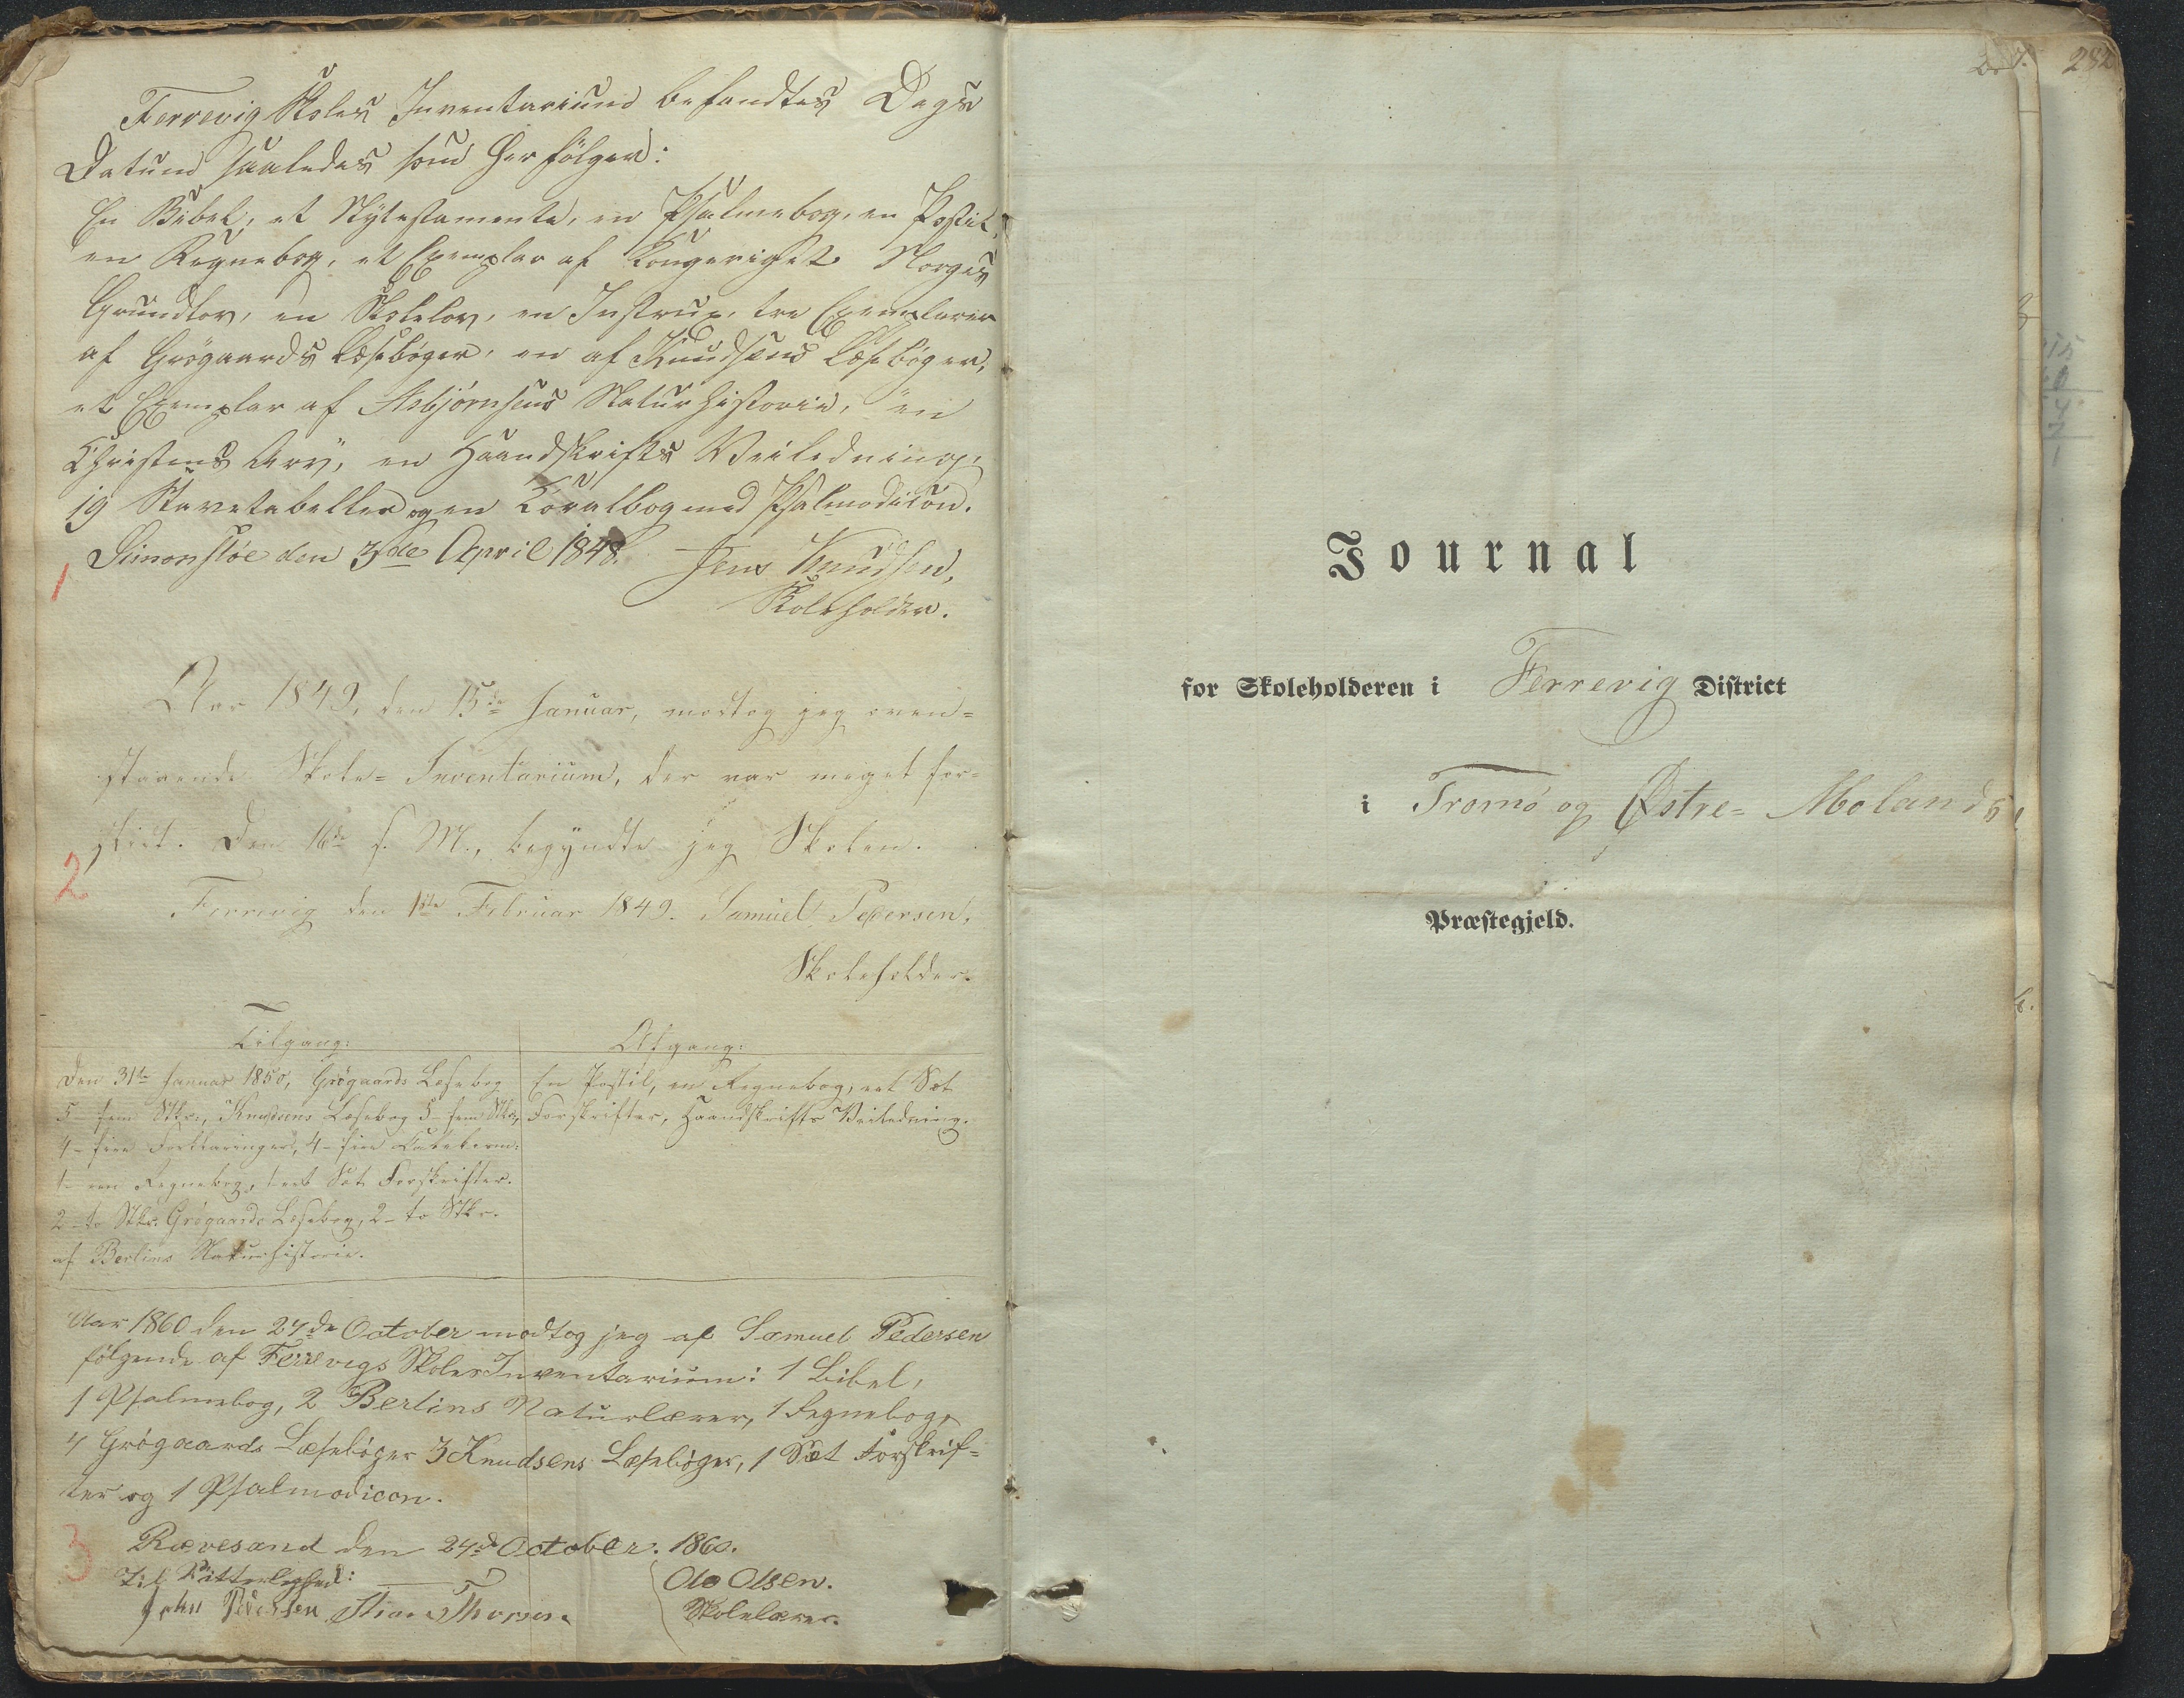 Ferrevig Skoles Inventarium befandtes Dags
Datum saaledes som her følger:
En Bibel, et Nytestamente, en Psalmebog, en Postil,
en Regnebog, et Exemplar af Kongeriget Norges
Grundlov, en Skolelov, en Instrux, tre Exemplarer
af Grøgaards Læsebøger, en af Knudsens Læsebøger,
et Exemplar af Asbjørnsens Naturhistorie, "en
Christens Arv", en Haandskrifts Veiledning,
19 Stavetabeller og en Koralbog med Psalmodicon.
Simonstøe den 3de April 1848. Jens Knudsen,
1
Skoleholder.
Aar 1849, den 15de Januar, modtog jeg oven-
staaende Skole-Inventarium, der var meget for-
slidt. Den 16de s. M., begyndte jeg Skolen.
2
Ferrevig den 1ste Februar 1849. Samuel Pedersen,
Skoleholder.
Tilgang: Afgang:
Den 31te Januar 1850, Grøgaards Læsebog En Postil, en Regnebog, eet Sæt
5 fem Stkr., Knudsens Læsebog 5 - fem Stkr, Forskrifter, Haandskrifts Veiledning.
4 - fire Forklaringer, 4 - fire
1 - en Regnebog, 1 eet Sæt Forskrifter.
2 - to Stkr. Grøgaards Læsebog, 2 - to Stkr.
af Berlins Naturhistorie.
Aar 1860 den 24de October modtog jeg af Samuel Pedersen
følgende af Ferrevigs Skoles Inventarium: 1 Bibel,
1 Psalmebog, 2 Berlins Naturlærer, 1 Regnebog,
4 Grøgaards Læsebøger 3 Knudsens Læsebøger, 1 Sæt Forskrif-
ter og 1 Psalmodicon.
3
Rævesand den 24de October. 1860.
Til Vitterlighed: Ole Olsen.
John Pedersen Thorsen. Skolelærer.
282
Journal
for Skoleholderen i Ferrevig District
i Tromø og Østre-Molands
Præstegjeld.